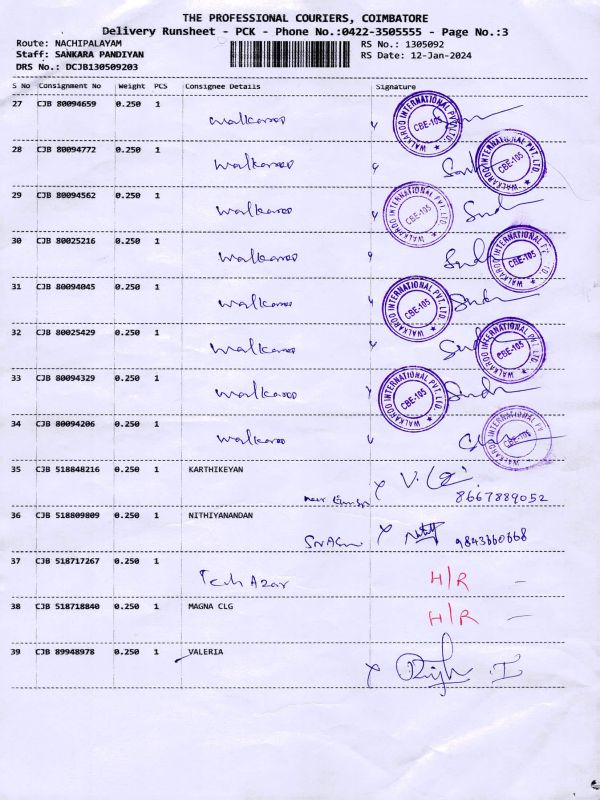 THE PROFESSIONAL COURIERS, COIMBATORE
Delivery Runsheet - PCK - Phone No.:0422-3505555 - Page No.:3
Route: NACHIPALAYAM RS No.: 1305092
Staff: SANKARA PANDIYAN RS Date: 12-Jan-2024
DRS No.: DCJB130509203
S No Consignment No Weight PCS Consignee Details Signature
27 CJB 80094659 0.250 1 Walkaroo WALKAROO INTERNATIONAL PVT. LTD. CBE-105
28 CJB 80094772 0.250 1 Walkaroo WALKAROO INTERNATIONAL PVT. LTD. CBE-105
29 CJB 80094562 0.250 1 Walkaroo WALKAROO INTERNATIONAL PVT. LTD. CBE-105
30 CJB 80025216 0.250 1 Walkaroo WALKAROO INTERNATIONAL PVT. LTD. CBE-105
31 CJB 80094045 0.250 1 Walkaroo WALKAROO INTERNATIONAL PVT. LTD. CBE-105
32 CJB 80025429 0.250 1 Walkaroo WALKAROO INTERNATIONAL PVT. LTD. CBE-105
33 CJB 80094329 0.250 1 Walkaroo WALKAROO INTERNATIONAL PVT. LTD. CBE-105
34 CJB 80094206 0.250 1 Walkaroo WALKAROO INTERNATIONAL PV CBE-105
35 CJB 518848216 0.250 1 KARTHIKEYAN
8667889052
36 CJB 518809809 0.250 1 NITHIYANANDAN
9843660668
37 CJB 518717267 0.250 1 Tech Azar H/R -
38 CJB 518718840 0.250 1 MAGNA CLG H/R -
39 CJB 89948978 0.250 1 VALERIA